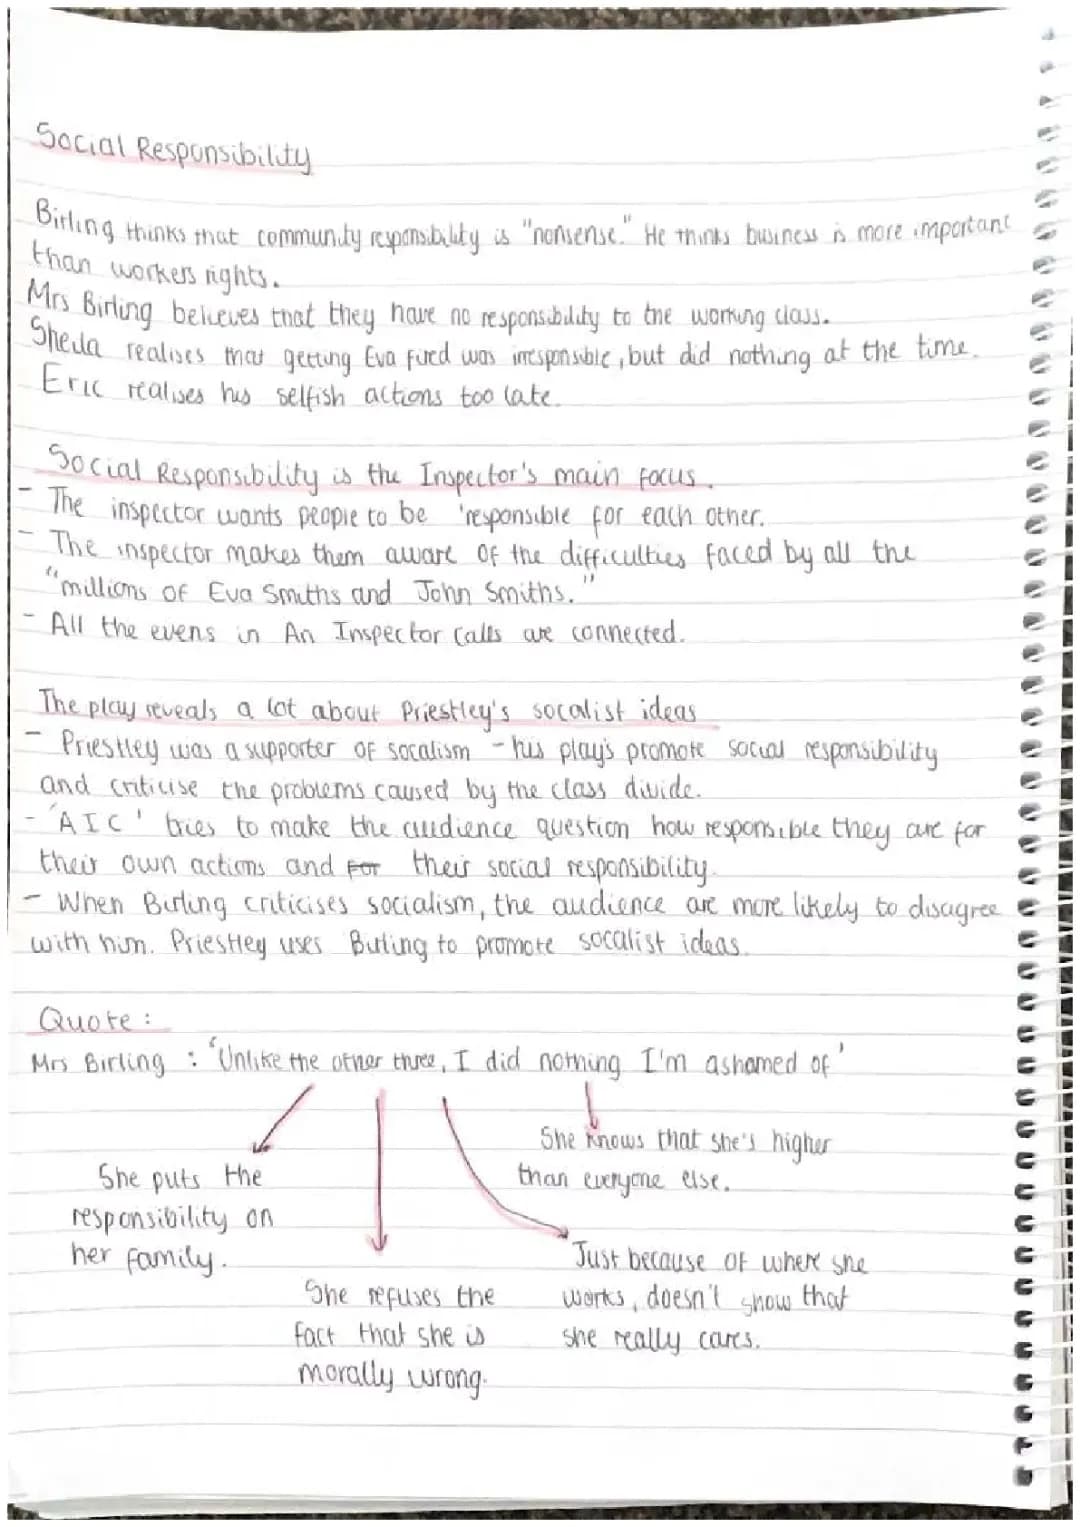 Social Responsibility
Birling thinks that community responsibility is "nonsense." He thinks business is more important
than workers rights.
Mrs Birling believes that they have no responsibility to the working class.
Sheila realises that getting Eva fired was irresponsible, but did nothing at the time.
Eric realises his selfish actions too late.
Social Responsibility is the Inspector's main focus.
- The inspector wants people to be 'responsible for each other.
- The inspector makes them aware of the difficulties faced by all the
"millions of Eva Smiths and John Smiths."
- All the evens in An Inspector Calls are connected.
The play reveals a lot about Priestley's socalist ideas
- Priestley was a supporter of socalism - his play's promote social responsibility
and criticise the problems caused by the class divide.
- 'AIC' tries to make the audience question how responsible they are for
their own actions and for their social responsibility.
- When Birling criticises socialism, the audience are more likely to disagree
with him. Priestley uses Birling to promote socalist ideas.
Quote :
Mrs Birling : 'Unlike the other three, I did nothing I'm ashamed of'
She knows that she's higher
than everyone else.
She puts the
responsibility on
her family.
She refuses the
fact that she is
morally wrong.
Just because of where she
works, doesn't show that
she really cares.